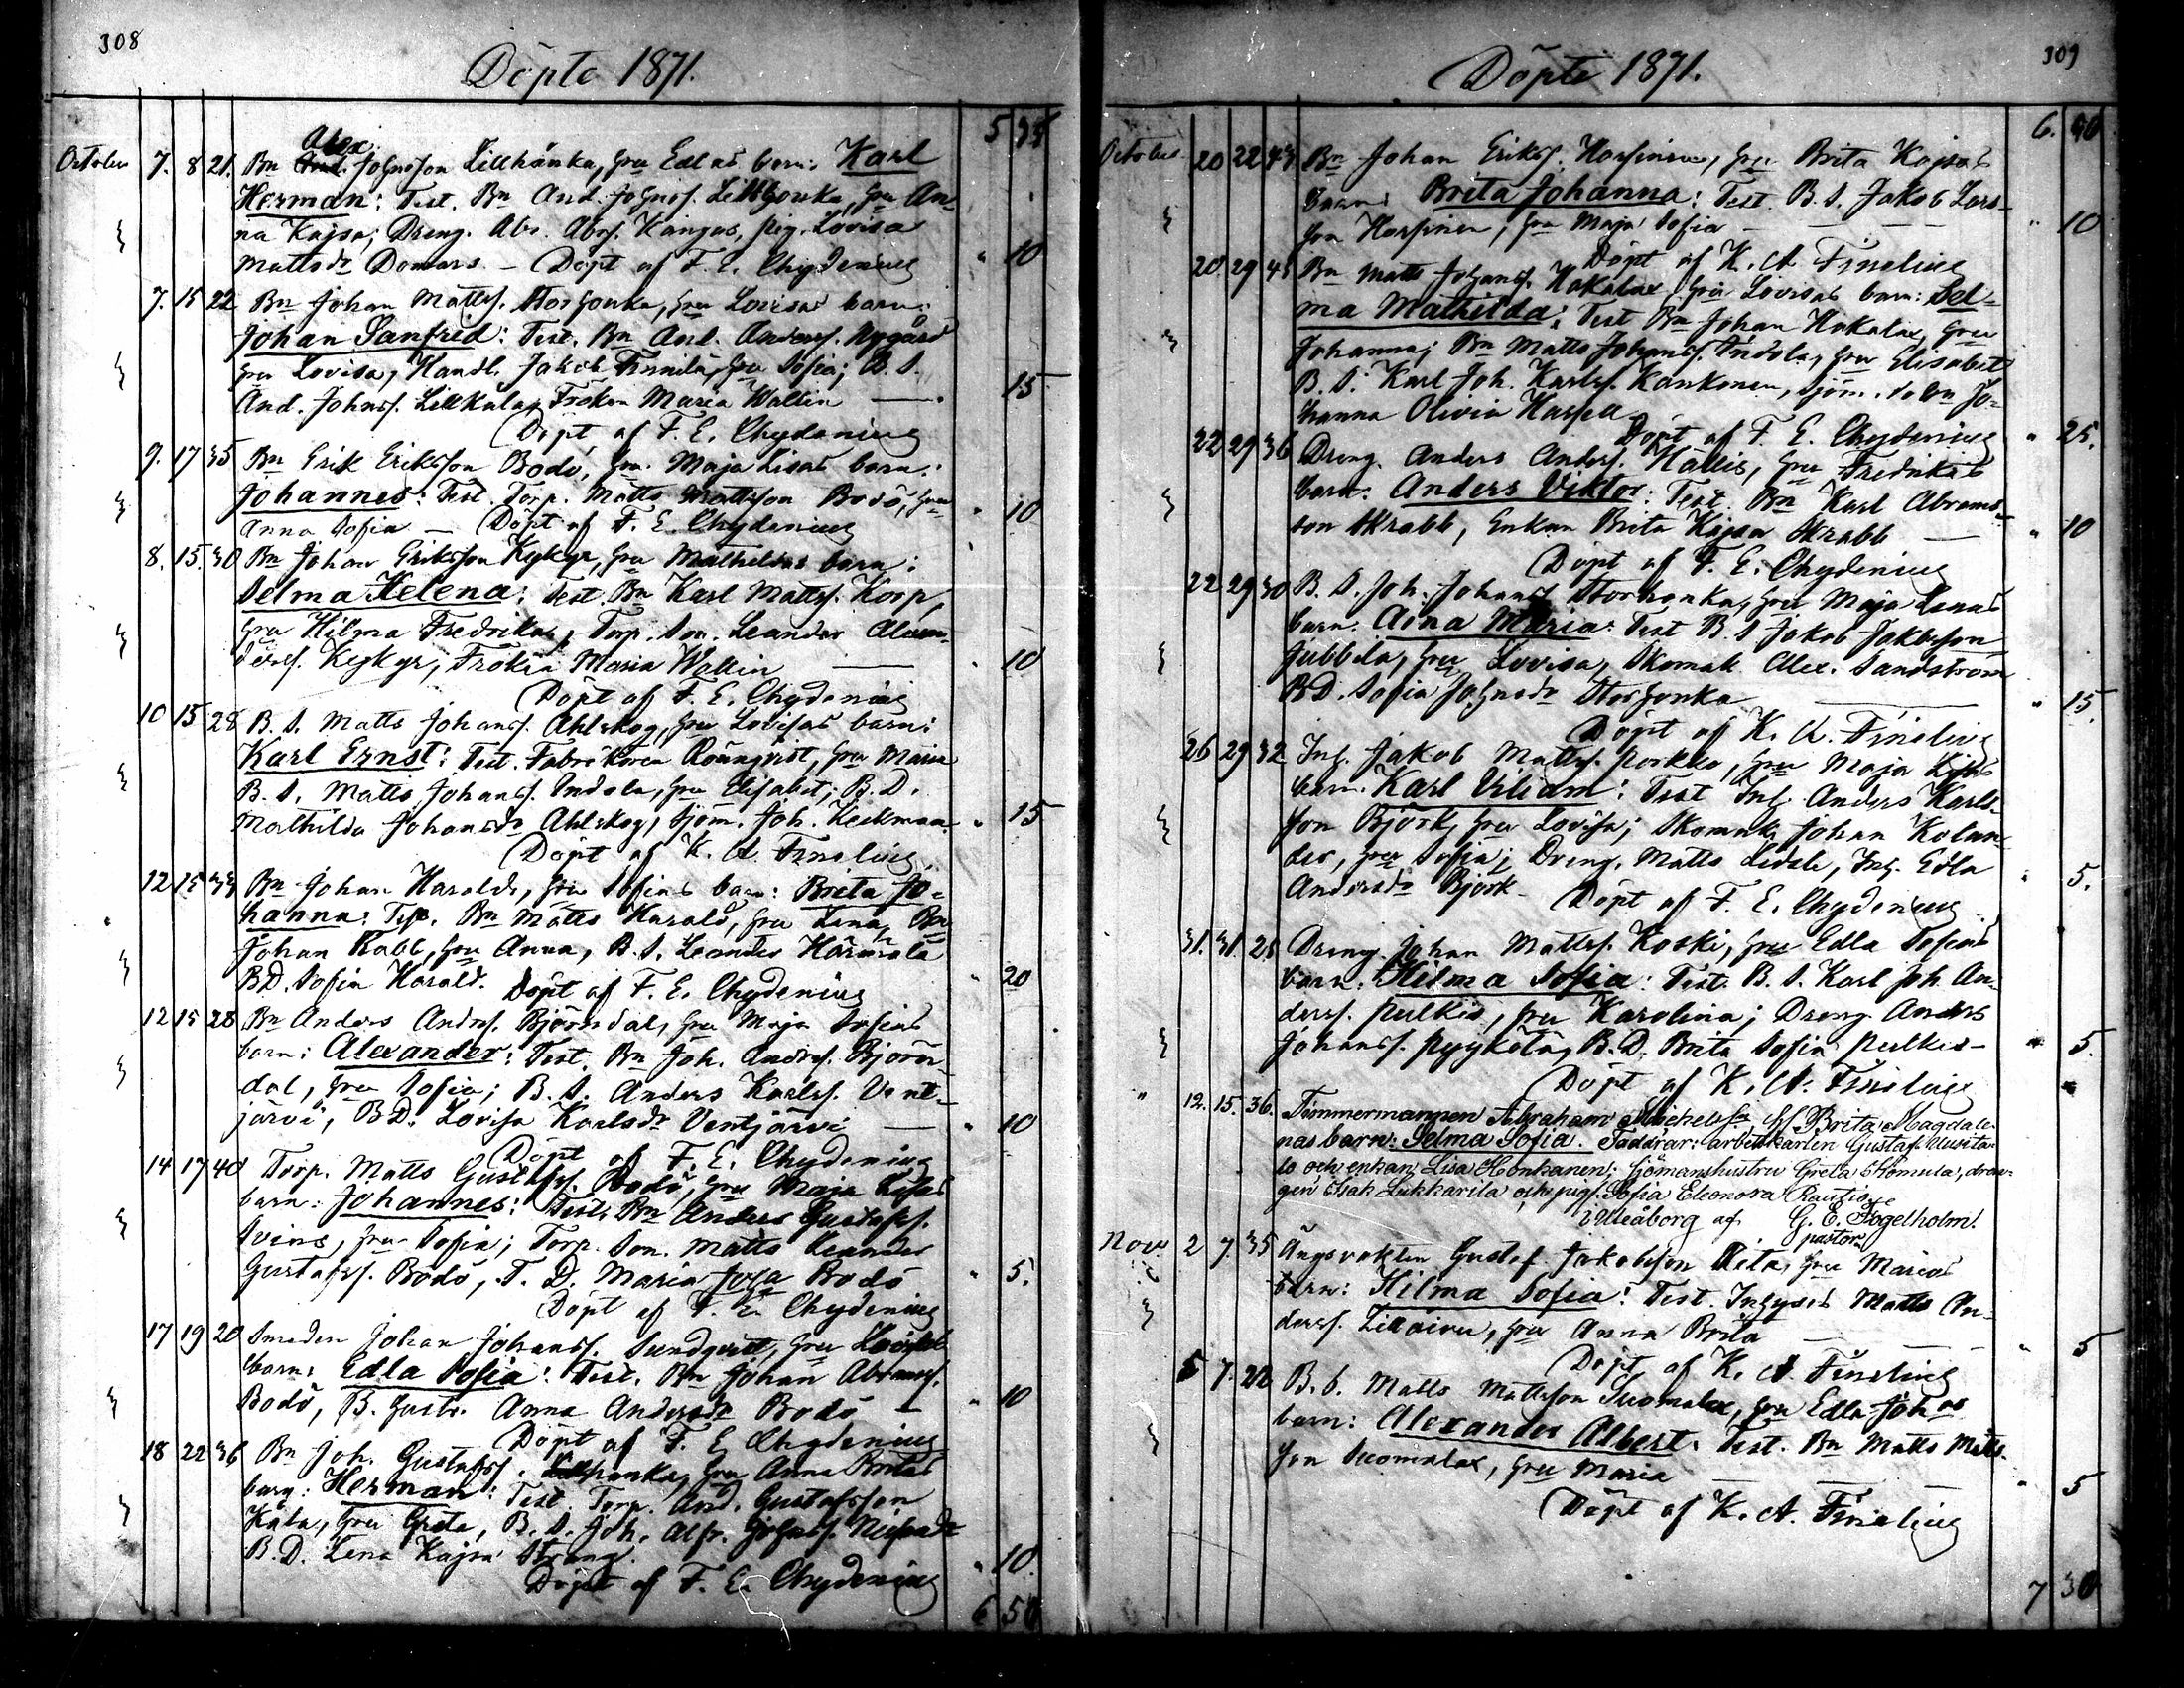 308
Döpte 1871.
5 35
October 7. 8 21. Bn Alex. Johansson Lillhänka, hu Edlas barn: Karl
Herman: Test. Bn And. Johnss. hu An-
na Kajsa; Dreng. Abr. Abrs. Kangas, pig. Lovisa
Mattsdr Domars. — Döpt af F. E. Chydenius " 10
7. 15 22 Bn Johan Mattss. Storhonka, hu Lovisas barn:
Johan Sanfred: Test. Bn And. Anderss. Nygård
hu Lovisa, Handl. Jakob Finnilä, hu Sofia; B. S.
And. Johnss. Lillkåla, Fröken Maria Wallin — 15
Döpt af F. E. Chydenius
9. 17 35 Bn Erik Eriksson Bodö, hu Maja Lisas barn:
Johannes: Test. Torp. Matts Mattsson Bodö, hu
Anna Sofia — Döpt af F. E. Chydenius " 10
8. 15. 30 Bn Johan Eriksson Kykyr, hu Mathildas barn:
Selma Helena: Test. Bn Karl Mattss. Korp,
hu Hilma Fredrika, Torp. Son. Leander Alexan-
derss. Kykyr, Fröken Maria Wallin — " 10
Döpt af F. E. Chydenius
10 15 28 B. S. Matts Johanss. Ahlskog, hu Lovisas barn:
Karl Ernst: Test. Fabrikören Rönnqvist, hu Maria
B. S. Matts Johanss. Indola, hu Elisabet; B. D.
Mathilda Johansdr Ahlskog, Sjöm. Joh. Keckman. " 15
Döpt af K. A. Finelius
12 15 33 Bn Johan Harald, hu Sofias barn: Brita Jo-
hanna: Test. Bn Matts Harald, hu Lena, Bn
Johan Rabb, hu Anna, B. S. Leander Härmälä
B.D. Sofia Harald. Döpt af F. E. Chydenius " 20
12 15 28 Bn Anders Anderss. Björndal, hu Maja Sofias
barn: Alexander: Test. Bn Joh. Anderss. Björn-
dal, hu Sofia; B. S. Anders Karlss. Vent-
järvi, B.D. Lovisa Karlsdr Ventjärvi — " 10
Döpt af F. E. Chydenius
14 17 40 Torp. Matts Gustafss. Bodö, hu Maja Lisas
barn: Johannes: Test. Bn Anders Gustafss.
Svins, hu Sofia; Torp. Son. Matts Leander
Gustafss. Bodö, T. D. Maria Bodö " 5.
Döpt af F. E. Chydenius
17 19 20 Smeden Johan Johanss. Sundqvist, hu Lovisas
barn: Edla Sofia: Test. Bn Johan Abramss.
Bodö, B. hustr. Anna Andersdr Bodö — " 10
Döpt af F. E. Chydenius
18 22 36 Bn Joh. Gustafss. hu Anna Britas
barn: Herman: Test. Torp. And. Gustafsson
Kåla, hu Greta, B. S. Joh. Alfr.
B. D. Lena Kajsa Strang. " 10.
Döpt af F. E. Chydenius
6 50
309
Döpte 1871.
6. 50
October 20 22 43 Bn Johan Erikss. Harsinen, hu Brita Kajsas
barn: Brita Johanna: Test. B. S. Jakob Lars-
son Harsinen, hu Maja Sofia — " 10
Döpt af K. A. Finelius
20 29 43 Bn Matts Johanss. Hakalax, hu Lovisas barn: Sel-
ma Mathilda: Test. Bn Johan Hakalax, hu
Johanna; Bn Matts Johanss. Indola, hu Elisabet
B. S. Karl Joh. Karlss. Kankonen, Sjöm. Jo-
hanna Olivia Kasper " 25.
Döpt af F. E. Chydenius
22 29 36 Dreng. Anders Anderss. Hällis, hu Fredrikas
barn: Anders Viktor: Test. Bn Karl Abrams-
son Skrabb, Enkan Brita Kajsa Skrabb — " 10
Döpt af F. E. Chydenius
22 29 30 B. S. Joh. Johanss. Storhonka, hu Maja Lenas
barn: Aina Maria: Test. B. S. Jakob Jakobsson
Jubbila, hu Lovisa, Skomak. Alex. Sandström
B.D. Sofia Johansdr Storhonka — " 15.
Döpt af K. A. Finelius
26 29 32 Inh. Jakob Mattss. Porkko, hu Maja Lisas
barn: Karl Viliam: Test. Inh. Anders Karls-
son Björk, hu Lovisa; Skomak. Johan Kolan-
der, hu Sofia; Dreng. Matts Inh. Edla
Andersdr Björk — Döpt af F. E. Chydenius " 5.
31. 31. 25 Dreng. Johan Mattss. Koski, hu Edla Sofias
barn: Hilma Sofia: Test. B. S. Karl Joh. An-
derss. Pulkis, hu Karolina; Dreng Anders
Johanss. Pyykölä, B. D. Brita Sofia Pulkis — 5.
Döpt af K. A. Finelius
" 12. 15. 36. Timmermannen Abraham Brita Magdale-
nas barn: Selma Sofia. Faddrar: arbetskarlen Gustaf
och enkan Lisa Honkanen; Sjömanshustru Greta Homula, dren-
gen Isak Lukkarila och pig. Sofia Eleonora Rautio
i Uleåborg af G. E. Fogelholm.
pastor
Nov. 2 7. 35 Ängsvakten Gustaf Jakobsson Rita, hu Marias
barn: Hilma Sofia: Test. Inhyses Matts An-
derss. hu Anna Brita — " 5
Döpt af K. A. Finelius
5 7. 22 B. S. Matts Mattsson Suomalax, hu Edla Joh.as
barn: Alexander Albert: Test. Bn Matts Matts-
son Suomalax, hu Maria — " 5
Döpt af K. A. Finelius
7 30